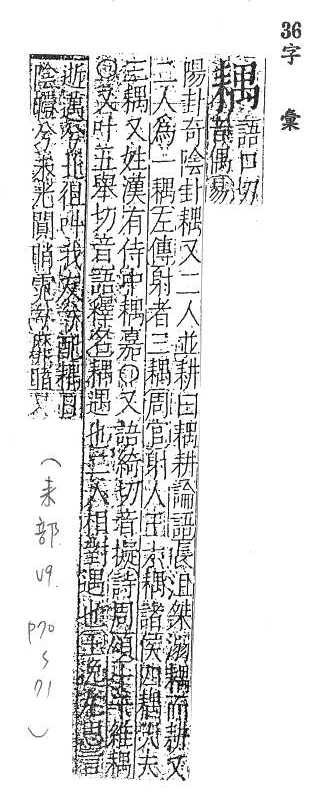 36字彙
耦 語口切 音偶 易
陽卦奇陰卦耦又二人並耕曰耦耕論語長沮桀溺耦而耕又
二人為一耦左傳射者三耦周官射人王六耦諸侯四耦大夫
三耦又姓漢有侍中耦嘉○又語綺切音擬詩周頌十千維耦
○又叶五舉切音語釋名耦遇也二人相對遇也王逸九思言
逝邁兮北徂叫我友兮配耦日
陰曀兮未光闃睄窕兮靡睹又
(耒部 U9. P70 ~ 71)